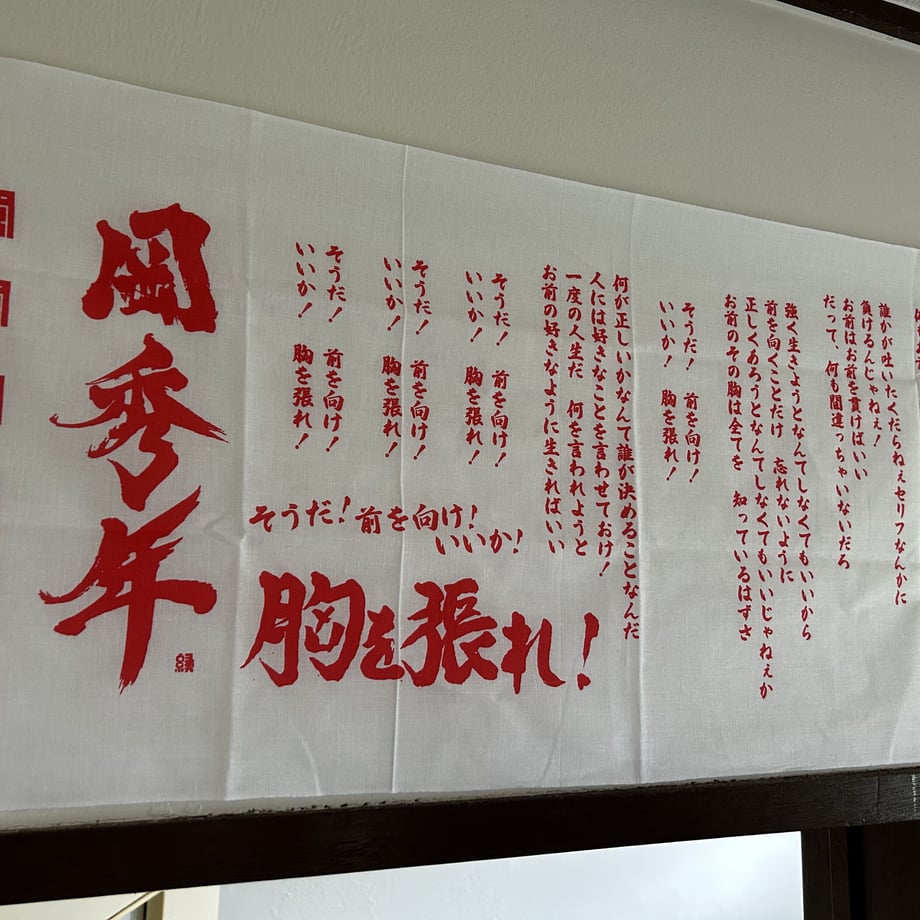 誰かが吐いたくだらねぇセリフなんかに
負けるんじゃねぇ!
お前はお前を貫けばいい
だって、何も間違っちゃいないだろ
強く生きようとなんてしなくてもいいから
前を向くことだけ 忘れないように
正しくあろうとなんてしなくてもいいじゃねぇか
お前のその胸は全てを 知っているはずさ
そうだ! 前を向け!
いいか! 胸を張れ!
何が正しいかなんて誰が決めることなんだ
人には好きなことを言わせておけ!
一度の人生だ 何を言われようと
お前の好きなように生きればいい
そうだ! 前を向け!
いいか! 胸を張れ!
そうだ! 前を向け!
いいか! 胸を張れ!
そうだ! 前を向け!
いいか! 胸を張れ!
そうだ!前を向け!
いいか!
胸を張れ!
岡秀年
縁